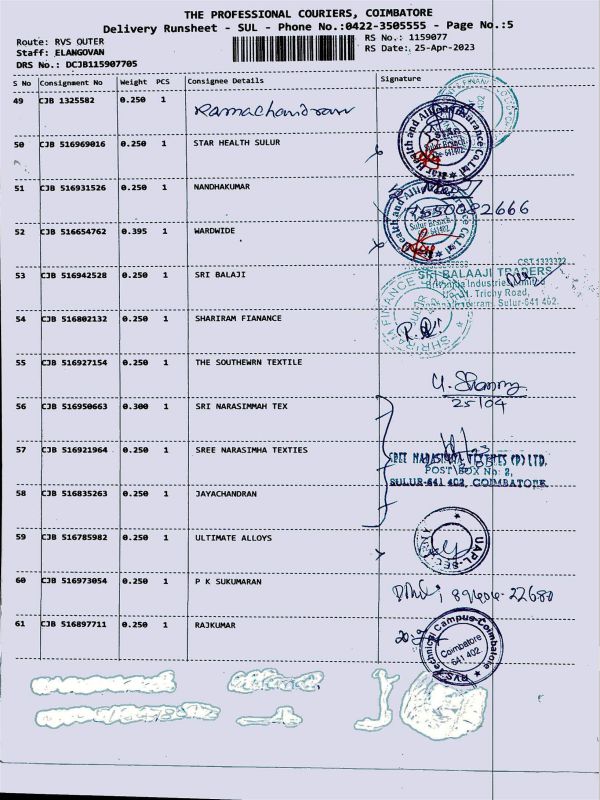 THE PROFESSIONAL COURIERS, COIMBATORE
Delivery Runsheet - SUL - Phone No.:0422-3505555 - Page No.:5
Route: RVS OUTER
RS No.: 1159077
Staff: ELANGOVAN
RS Date: 25-Apr-2023
DRS No.: DCJB115907705
S No Consignment No Weight PCS Consignee Details Signature
49 CJB 1325582 0.250 1 Ramachandran
50 CJB 516969016 0.250 1 STAR HEALTH SULUR
51 CJB 516931526 0.250 1 NANDHAKUMAR
52 CJB 516654762 0.395 1 WARDWIDE
53 CJB 516942528 0.250 1 SRI BALAJI
SRI BALAAJI TRADERS
Trichy Road,
Sulur-641 402.
54 CJB 516802132 0.250 1 SHARIRAM FIANANCE
55 CJB 516927154 0.250 1 THE SOUTHEWRN TEXTILE
25/04
56 CJB 516950663 0.300 1 SRI NARASIMMAH TEX
57 CJB 516921964 0.250 1 SREE NARASIMHA TEXTIES
SREE NARASIMHA TEXTILES (P) LTD.
POST BOX No: 2,
SULUR-641 402, COIMBATORE
58 CJB 516835263 0.250 1 JAYACHANDRAN
59 CJB 516785982 0.250 1 ULTIMATE ALLOYS
60 CJB 516973054 0.250 1 P K SUKUMARAN
61 CJB 516897711 0.250 1 RAJKUMAR
RVS Technical Campus-Coimbatore
Coimbatore
641 402